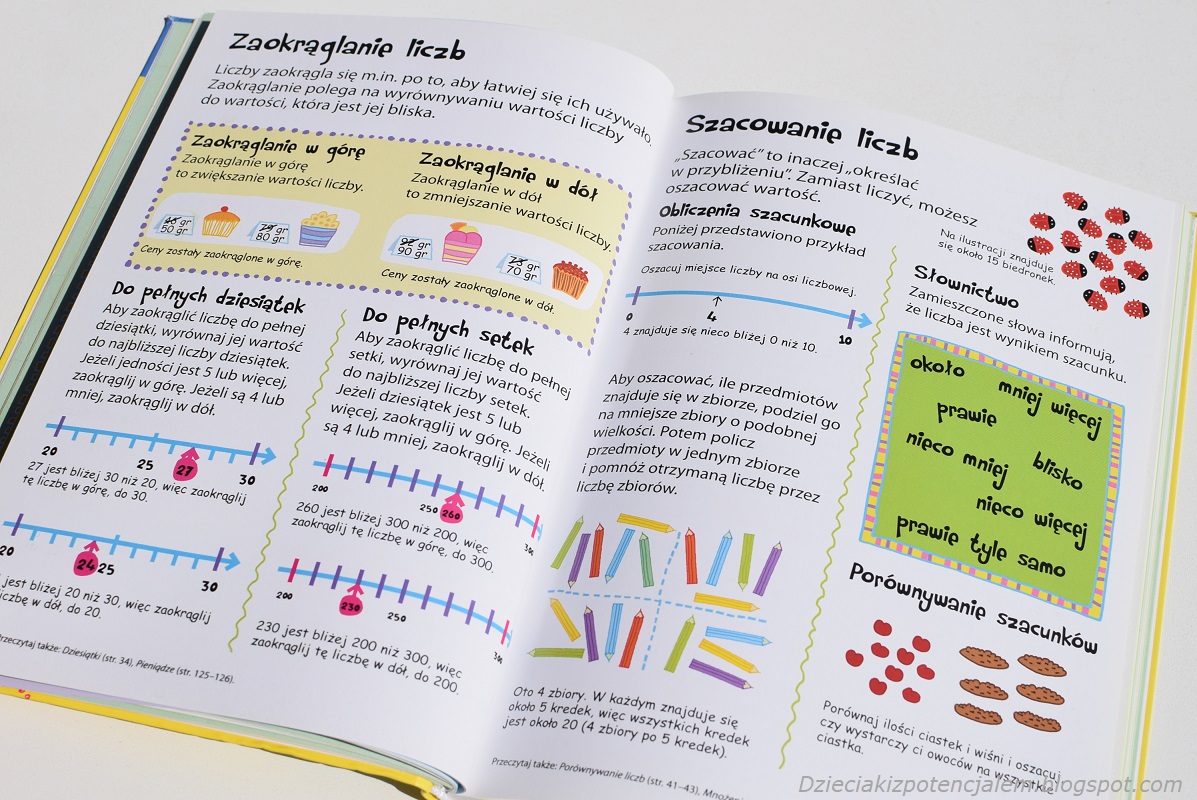 Zaokrąglanie liczb
Liczby zaokrągla się m.in. po to, aby łatwiej się ich używało.
Zaokrąglanie polega na wyrównywaniu wartości liczby
do wartości, która jest jej bliska.
Zaokrąglanie w górę
Zaokrąglanie w górę
to zwiększanie wartości liczby.
gr
50 gr
79 gr
80 gr
Ceny zostały zaokrąglone w górę.
Zaokrąglanie w dół
Zaokrąglanie w dół
to zmniejszanie wartości liczby.
92 gr
90 gr
73 gr
70 gr
Ceny zostały zaokrąglone w dół.
Do pełnych dziesiątek
Aby zaokrąglić liczbę do pełnej
dziesiątki, wyrównaj jej wartość
do najbliższej liczby dziesiątek.
Jeżeli jedności jest 5 lub więcej,
zaokrąglij w górę. Jeżeli są 4 lub
mniej, zaokrąglij w dół.
20 25 27 30
27 jest bliżej 30 niż 20, więc zaokrąglij
tę liczbę w górę, do 30.
20 24 25 30
jest bliżej 20 niż 30, więc zaokrąglij
liczbę w dół, do 20.
Przeczytaj także: Dziesiątki (str. 34), Pieniądze (str. 125–126).
Do pełnych setek
Aby zaokrąglić liczbę do pełnej
setki, wyrównaj jej wartość
do najbliższej liczby setek.
Jeżeli dziesiątek jest 5 lub
więcej, zaokrąglij w górę. Jeżeli
są 4 lub mniej, zaokrąglij w dół.
200 250 260 300
260 jest bliżej 300 niż 200, więc
zaokrąglij tę liczbę w górę, do 300.
200 230 250 300
230 jest bliżej 200 niż 300, więc
zaokrąglij tę liczbę w dół, do 200.
Szacowanie liczb
„Szacować” to inaczej „określać
w przybliżeniu”. Zamiast liczyć, możesz
oszacować wartość.
Obliczenia szacunkowe
Poniżej przedstawiono przykład
szacowania.
Oszacuj miejsce liczby na osi liczbowej.
0 4 10
4 znajduje się nieco bliżej 0 niż 10.
Aby oszacować, ile przedmiotów
znajduje się w zbiorze, podziel go
na mniejsze zbiory o podobnej
wielkości. Potem policz
przedmioty w jednym zbiorze
i pomnóż otrzymaną liczbę przez
liczbę zbiorów.
Oto 4 zbiory. W każdym znajduje się
około 5 kredek, więc wszystkich kredek
jest około 20 (4 zbiory po 5 kredek).
Przeczytaj także: Porównywanie liczb (str. 41–43),
Na ilustracji znajduje
się około 15 biedronek.
Słownictwo
Zamieszczone słowa informują,
że liczba jest wynikiem szacunku.
około
mniej więcej
prawie
nieco mniej
blisko
nieco więcej
prawie tyle samo
Porównywanie szacunków
Porównaj ilości ciastek i wiśni i oszacuj,
czy wystarczy ci owoców na wszystkie
ciastka.
Dzieciakizpotencjalem.blogspot.com